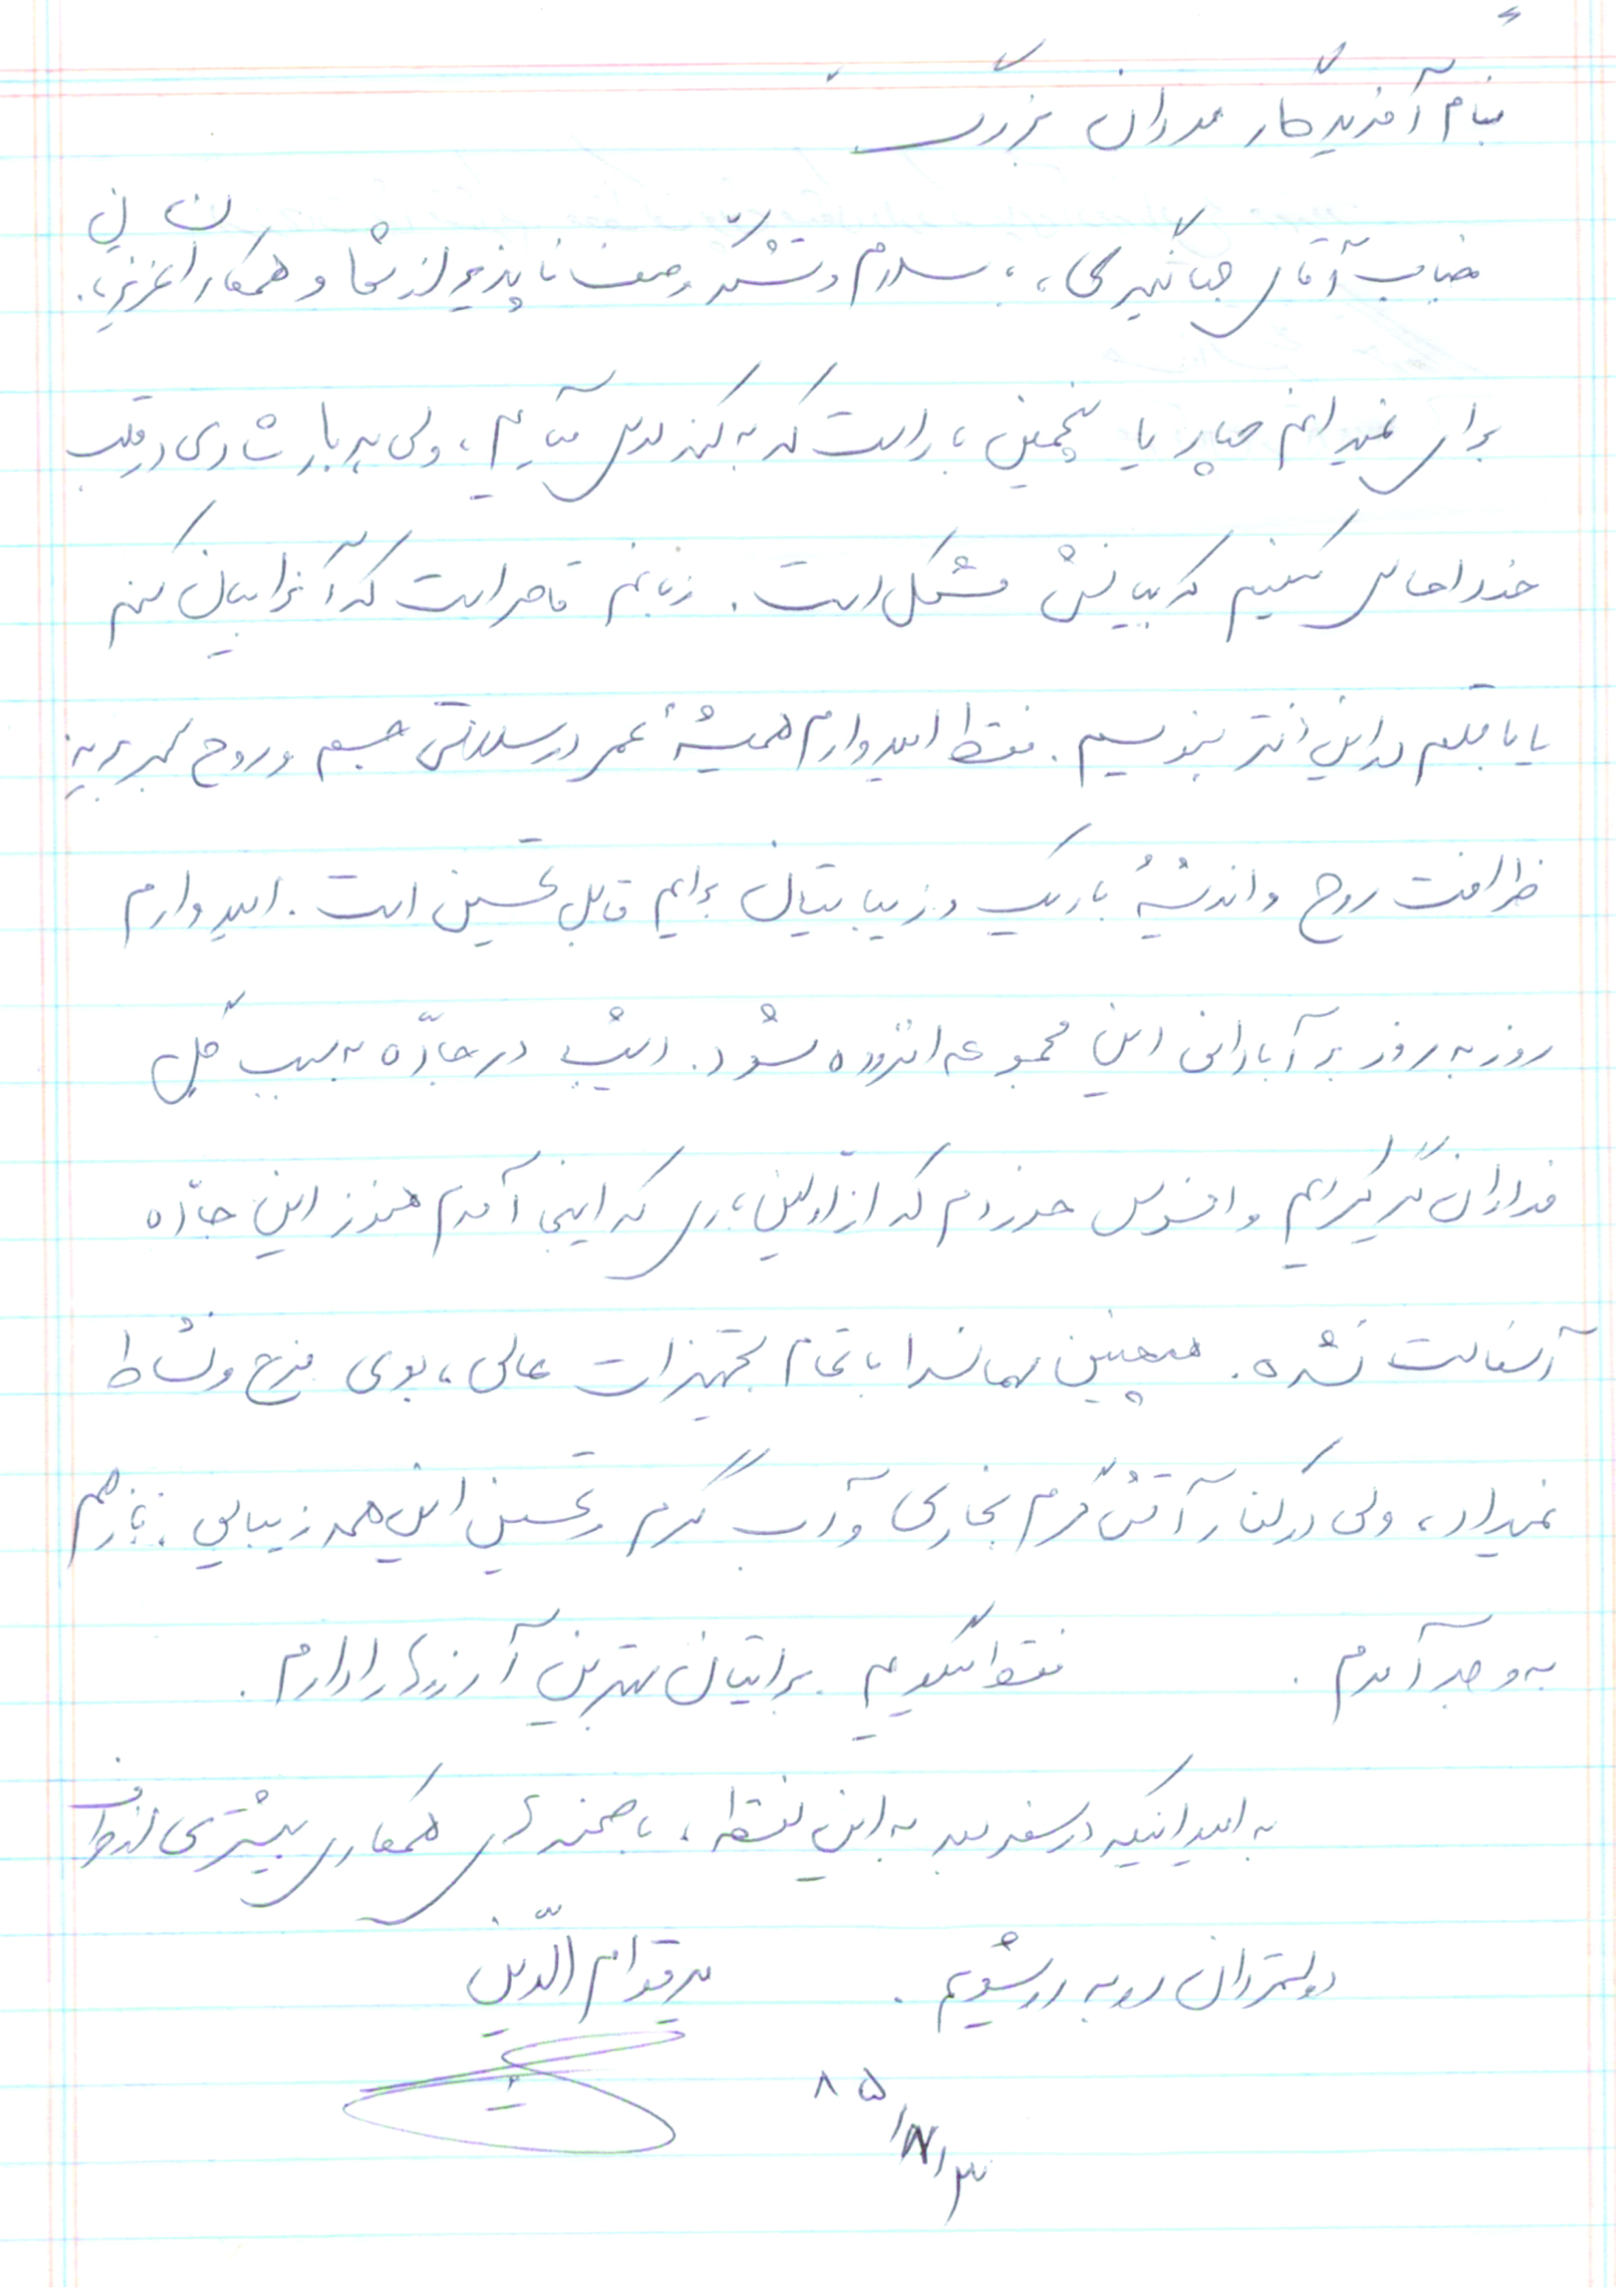 بنام آفریدگار مردان بزرگ
جناب آقای جهانگیری، سلام و تشکر وصف ناپذیر از شما و همکاران عزیزتان.
برای نمیدانم چهار یا پنجمین بار است که به کندلوس میآیم، ولی هر بار شادی در قلب
خود احساس میکنیم که بیانش مشکل است. زبانم قاصر است که آنرا بیان کنم
یا با قلم در این دفتر بنویسم. فقط امیدوارم همیشهٔ عمر در سلامتی جسم و روح بسر برید
ظرافت روح و اندیشهٔ باریک و زیبایتان برایم قابل تحسین است. امیدوارم
روز به روز بر آبادانی این مجموعه افزوده شود. دیشب در جاده به سبب گِل
فراوان گیر کردیم و افسوس خوردم که از اولین باری که اینجا آمدم هنوز این جاده
آسفالت نشده. همچنین مهمانسرا با تمام تجهیزات عالی، بوی فرح و نشاط
نمیداد، ولی در کنار آتش گرم بخاری و آب گرم و تحسین این همه زیبایی باز هم
به وجد آمدم. فقط میگویم برایتان بهترین آرزوها را دارم.
به امید اینکه در سفر بعد به این نقطه، با صحنه های همکاری بیشتری از طرف
دولتمردان روبه رو شویم. میرقوام الدین
۸۵/۷/۳